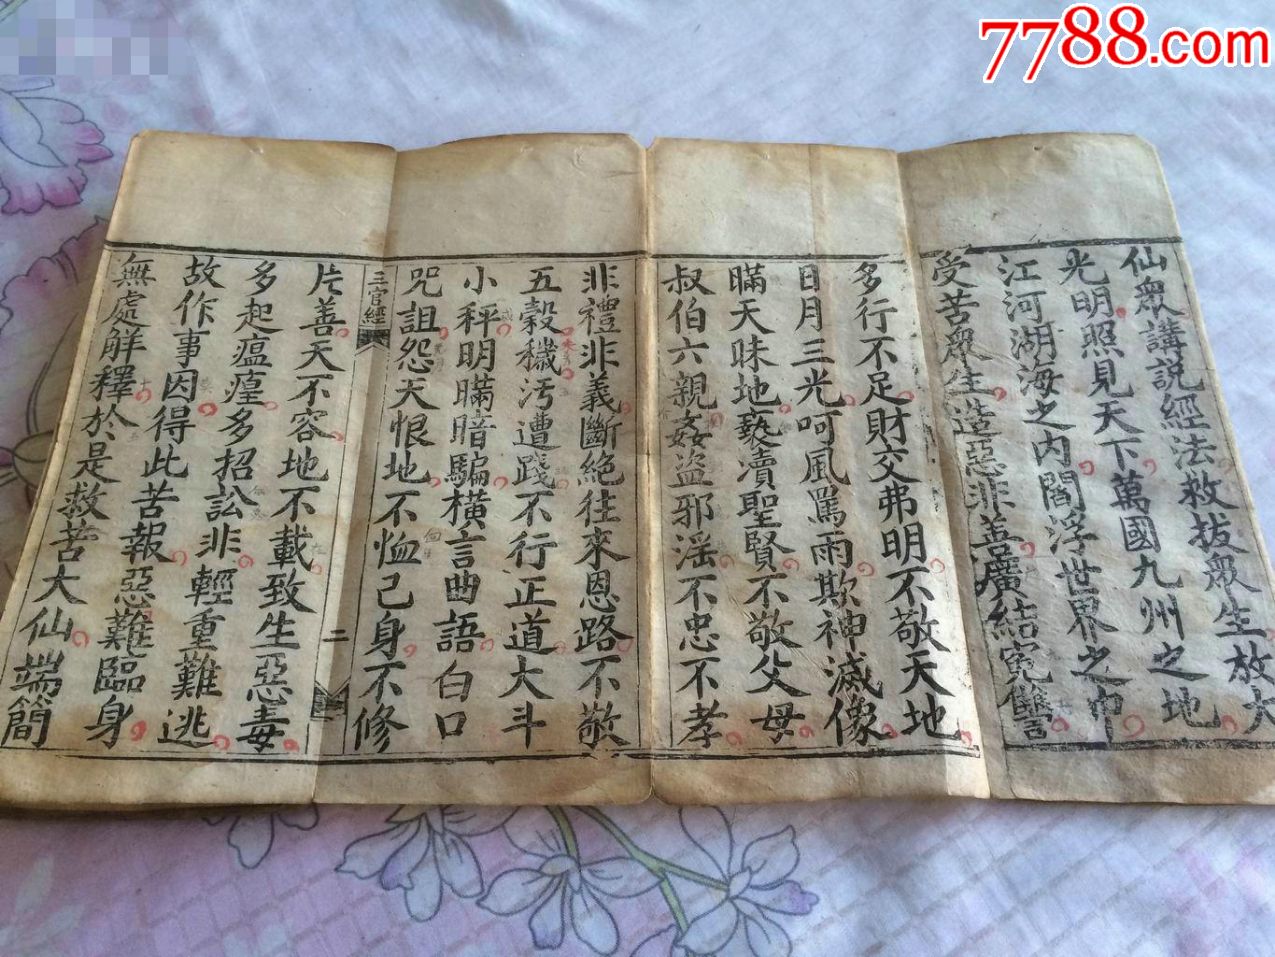 7788.com
仙眾講說經法救拔眾生放大
光明照見天下萬國九州之地
江河湖海之內閻浮世界之中
受苦眾生造惡非善廣結冤讐
多行不足財交弗明不敬天地
日月三光呵風罵雨欺神滅像
瞞天昧地褻瀆聖賢不敬父母
叔伯六親姦盜邪滛不忠不孝
非禮非義斷絕往來恩路不敬
五穀穢汚遭踐不行正道大斗
小秤明瞞暗騙橫言曲語白口
咒詛怨天恨地不恤己身不修
三官經
二
片善天不容地不載致生惡毒
多起瘟㾮多招訟非輕重難逃
故作事因得此苦報惡難臨身
無處解釋於是救苦大仙端簡